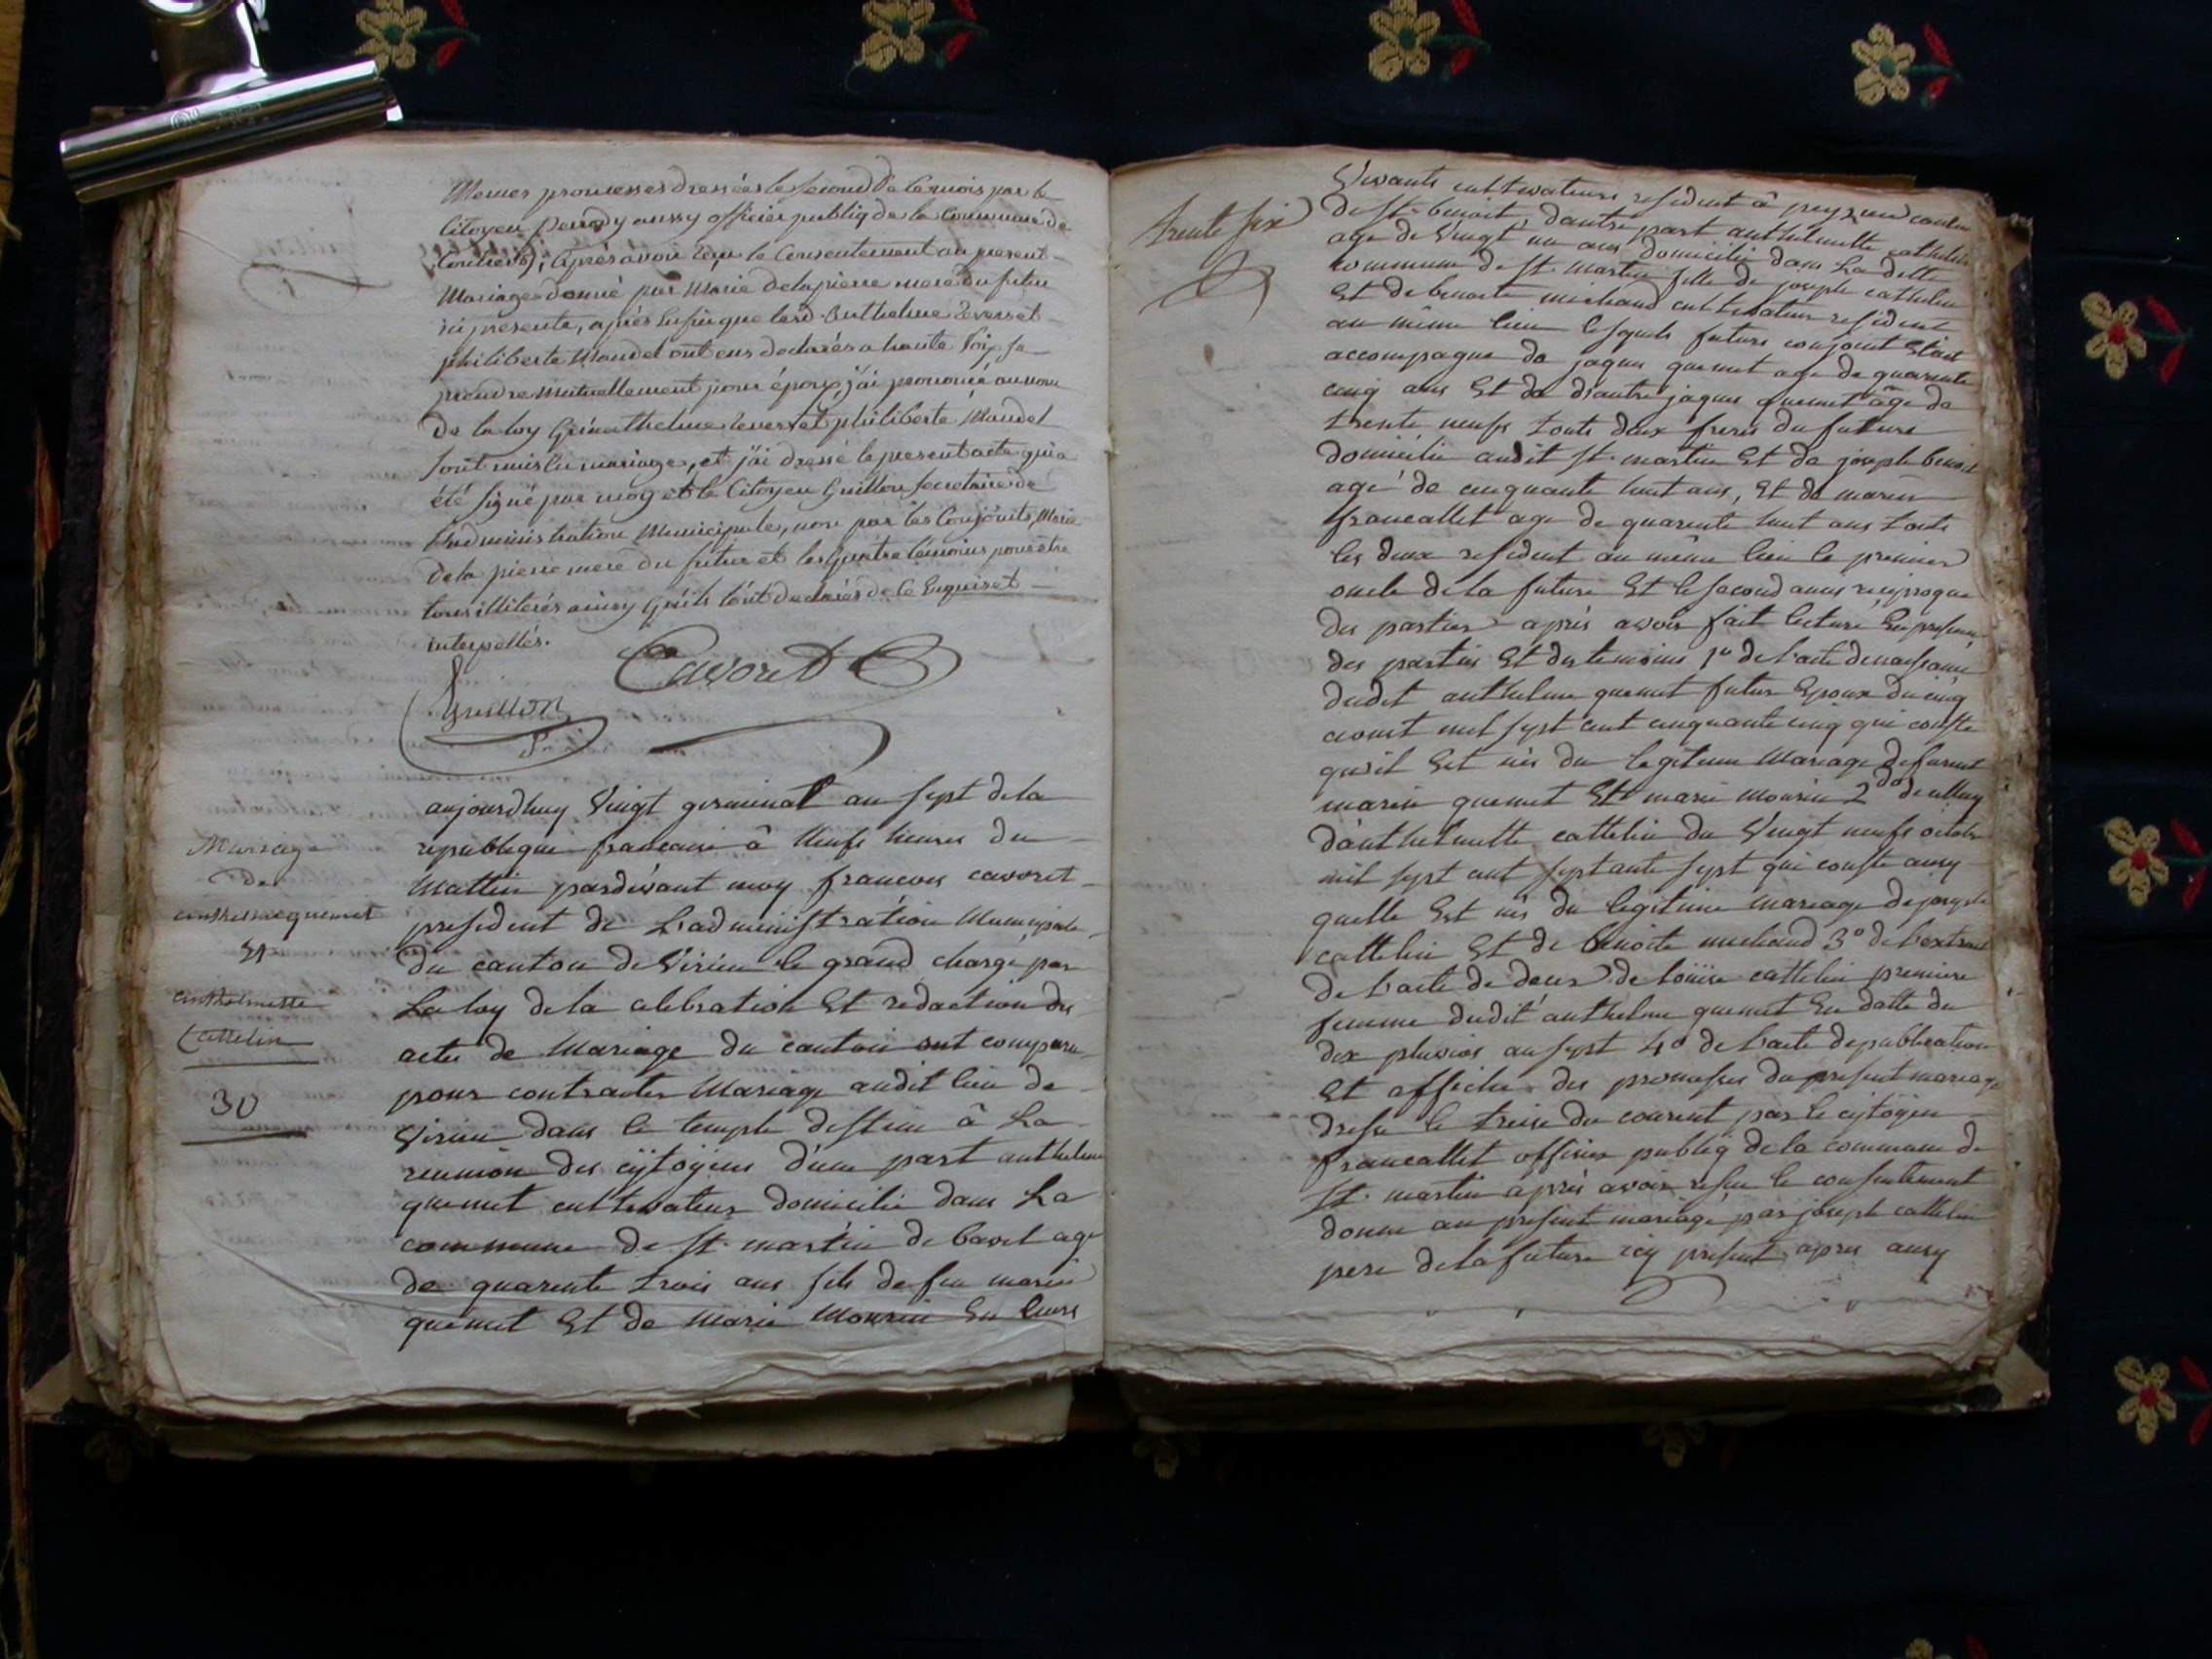 Memes promesses dressées le second de ce mois par le
Citoyen Perrody aussy officier publiq de la Commune de
après avoir reçu le Consentement au present
Mariage donné par Marie delapierre mere du futur
ici presente, après aussi que lesd. Anthelme Reverset
philiberte Mandel ont eus declarés a haute voix se
prendre mutuellement pour époux, j'ai prononcé au nom
de la loy qu'anthelme Reverset et philiberte Mandel
sont unis en mariage, et j'ai dressé le present acte qui a
été signé par moy et le Citoyen Guillon secretaire de
l'administration Municipale, non par les Conjoints, Marie
dela pierre mere du futur et les quatre témoins pour être
tous illiterés ainsy qu'ils l'ont declarés de ce Enquis et
interpellés.
Cavoret
Guillon
Mariage
de
anthelme quemet
Et
anthelmette
Cattelin
30
aujourdhuy Vingt germinal an sept dela
republique francaise â Neufs heures du
Mattin pardevant moy francois cavoret
president de L'administration Municipale
du canton de Virieu le grand chargé par
La loy dela celebration Et redaction des
actes de Mariage du canton ont comparu
pour contracter Mariage audit lieu de
Virieu dans le temple destine â La
reunion des cytoyens d'une part anthelme
quemet cultivateur domicilié dans La
commune de st. martin de bavel agé
de quarente trois ans fils de feu marin
quemet Et de Marie Mourin En leurs
trente six
Vivants cultivateurs resident â peyzieu canton
de st. benoit, d'autre part anthelmette cathelin
age de Vingt un ans domicilié dans La ditte
commune de st. martin fille de joseph cathelin
Et de benoite michaud cultivateur resident
au même lieu lesquels futurs conjoint Etait
accompagne de jaques quemet age de quarente
cinq ans Et de d'autre jaques quemet âge de
trente neufs touts deux freres du future
domicilié audit st. martin Et de joseph benoit
agé de cinquante huit ans, Et de marin
francallet age de quarente huit ans touts
les deux resident au même lieu le premier
oncle de la future Et le second amis reciproque
des parties après avoir fait lecture En presence
des parties Et des temoins 1º de l'acte de naissance
dudit anthelme quemet futur Epoux du cinq
aoust mil sept cent cinquante cinq qui conste
qu'il Est nés du legitime Mariage de furent
marin quemet Et marie Mourin 2do de celluy
d'anthelmette cattelin du Vingt neufs octobre
mil sept cent septante sept qui conste aussy
quelle Est nés du legitime mariage de joseph
cattelin Et de benoite michaud 3º de l'extrait
de l'acte de deces de loüise cattelin premiere
femme dudit anthelme quemet En datte du
dix pluvios an sept 4º de l'acte de publication
Et affiche des promesses du present mariage
dressé le treise du courent par le cytoyen
francallet officier publiq de la commune de
st. martin après avoir resçu le consentement
donne au present mariage par joseph cattelin
pere dela future icy present apres aussy